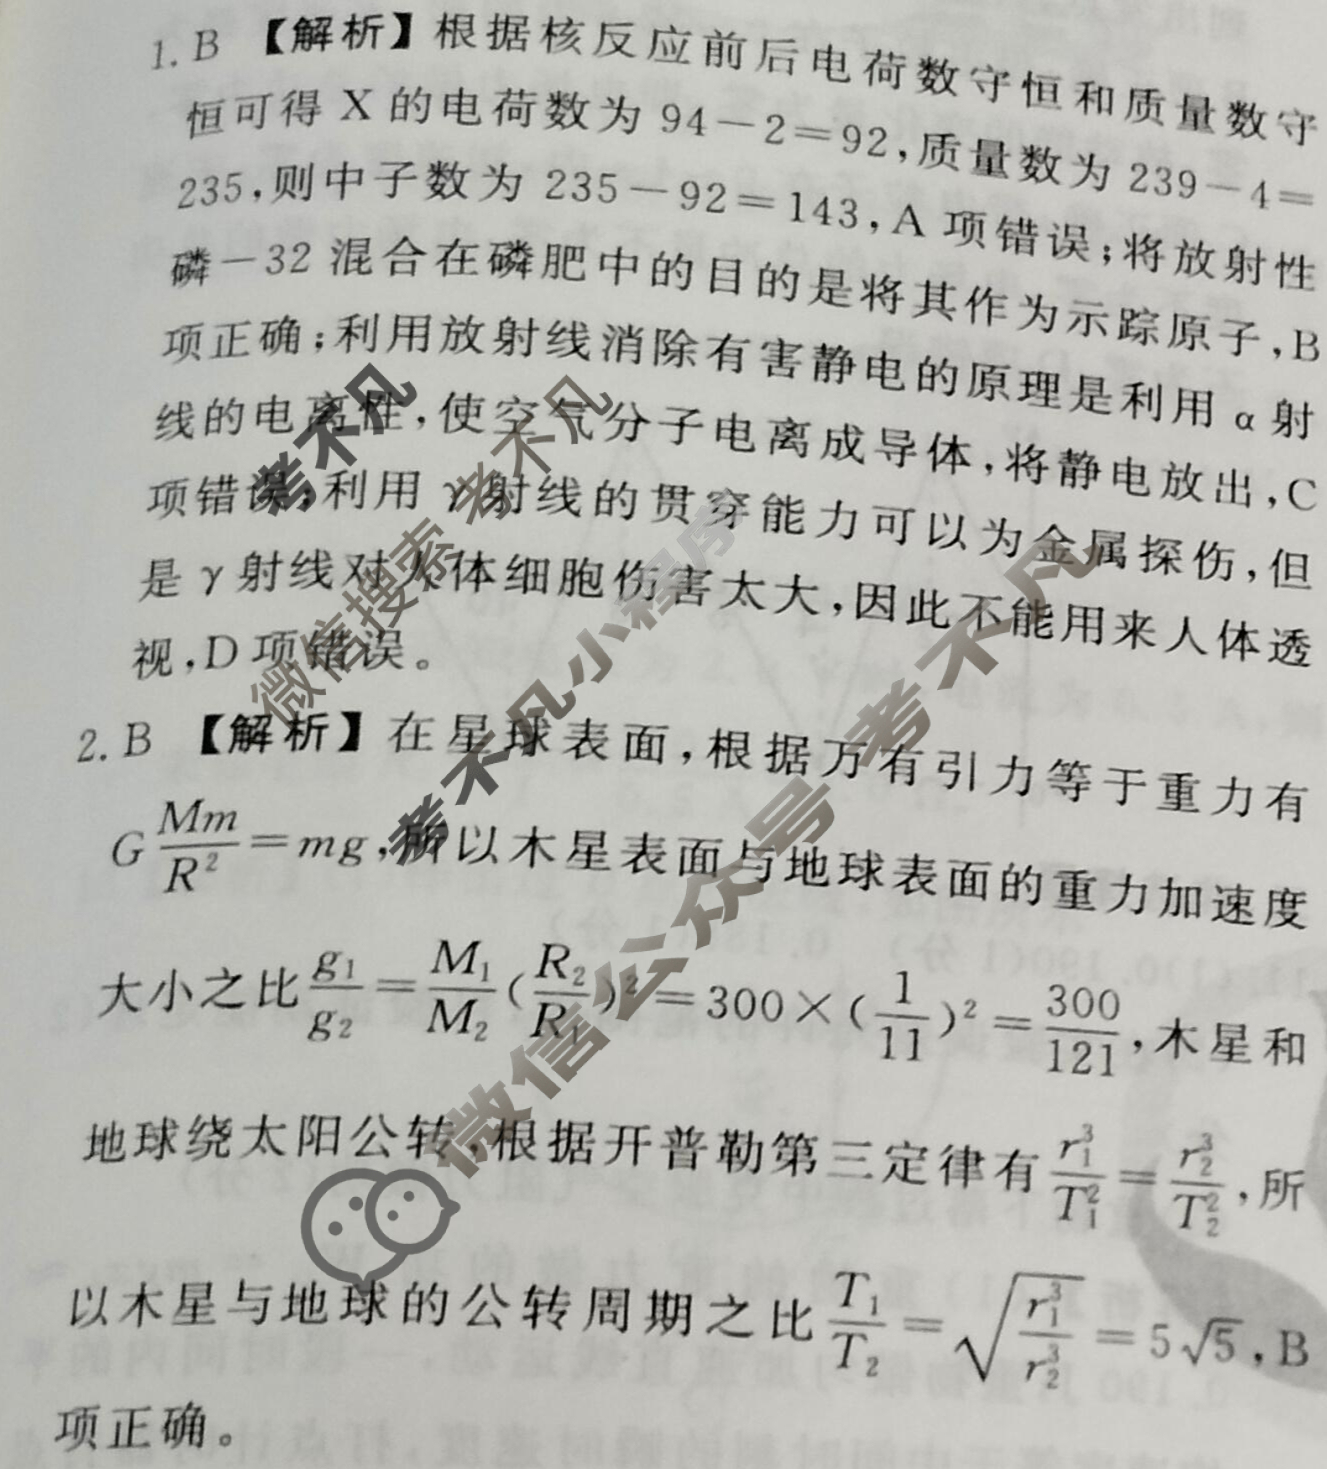 1. B 【解析】根据核反应前后电荷数守恒和质量数守
恒可得 X 的电荷数为 94－2＝92，质量数为 239－4＝
235，则中子数为 235－92＝143，A 项错误；将放射性
磷－32 混合在磷肥中的目的是将其作为示踪原子，B
项正确；利用放射线消除有害静电的原理是利用 α 射
线的电离性，使空气分子电离成导体，将静电放出，C
项错误；利用 γ 射线的贯穿能力可以为金属探伤，但
是 γ 射线对人体细胞伤害太大，因此不能用来人体透
视，D 项错误。
2. B 【解析】在星球表面，根据万有引力等于重力有
G\frac{Mm}{R^2}＝mg，所以木星表面与地球表面的重力加速度
大小之比\frac{g_1}{g_2}＝\frac{M_1}{M_2}(\frac{R_2}{R_1})^2＝300×(\frac{1}{11})^2＝\frac{300}{121}，木星和
地球绕太阳公转，根据开普勒第三定律有\frac{r_1^3}{T_1^2}＝\frac{r_2^3}{T_2^2}，所
以木星与地球的公转周期之比\frac{T_1}{T_2}＝\sqrt{\frac{r_1^3}{r_2^3}}＝5\sqrt{5}，B
项正确。
考不凡
微信搜索 考不凡
考不凡小程序
微信公众号 考不凡